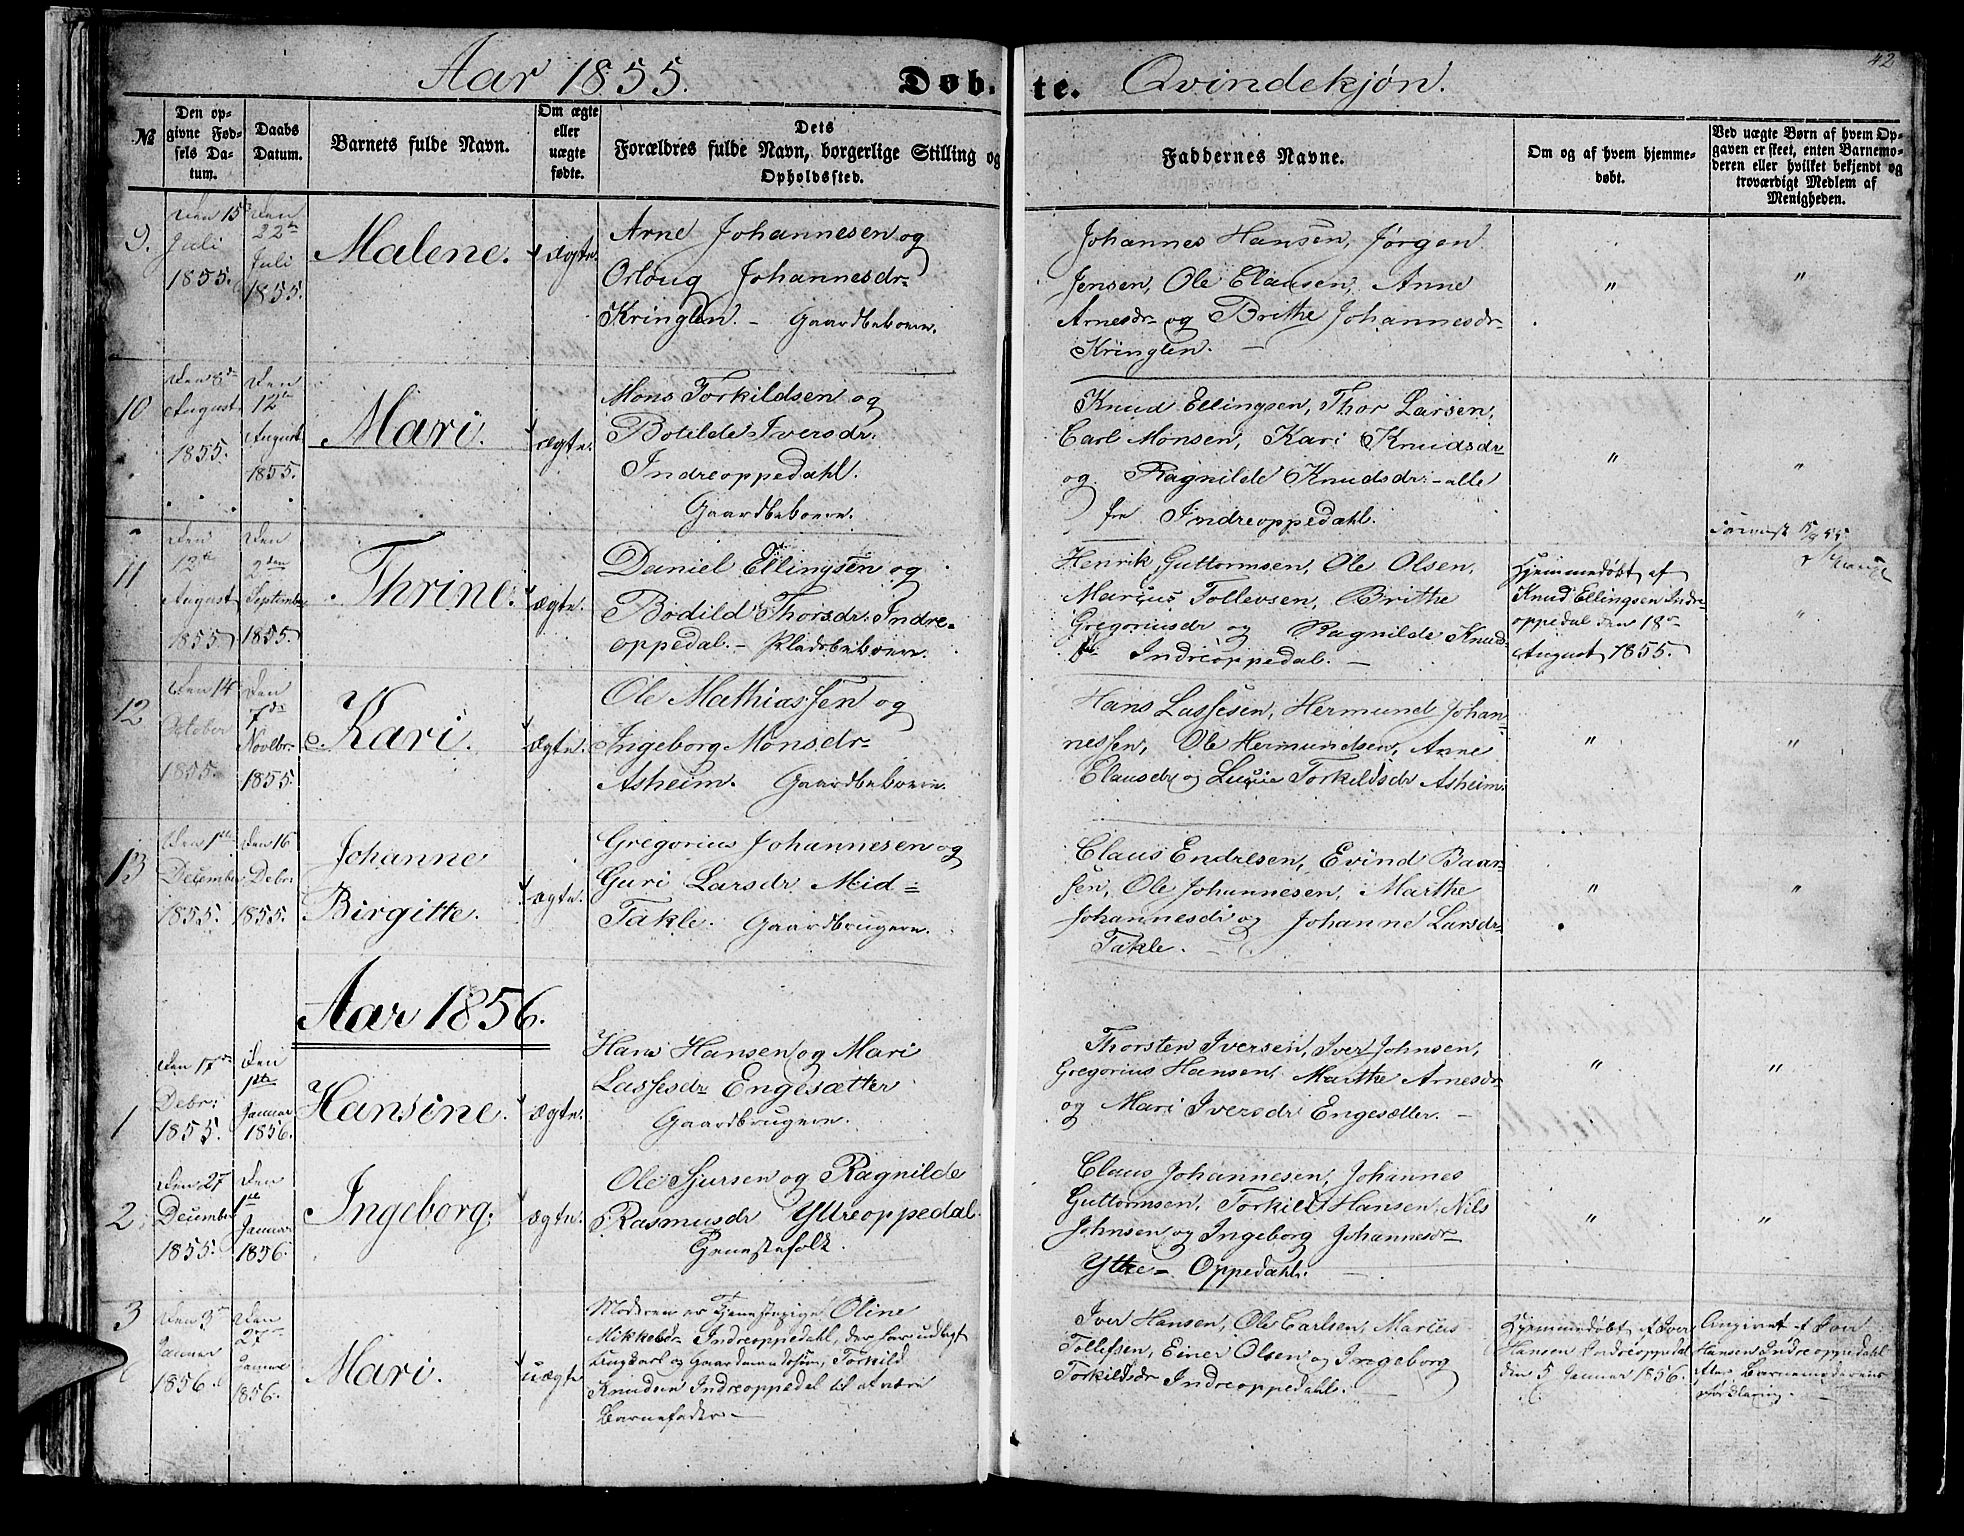 42
Aar 1855. Døbte. Qvindekjøn.
№
Den opgivne Fødsels Datum.
Daabs Datum.
Barnets fulde Navn.
Om ægte eller uægte fødte.
Dets Forældres fulde Navn, borgerlige Stilling og Opholdssted.
Faddernes Navne.
Om og af hvem hjemmedøbt.
Ved uægte Børn af hvem Opgaven er skeet, enten Barnemoderen eller hvilket bekjendt og troværdigt Medlem af Menigheden.
9.
Den 15de
Juli
1855.
Den
22de
Juli
1855.
Malene.
ægte.
Arne Johannesen og
Orloug Johannesdr
Kringlen. – Gaardbeboere.
Johannes Hansen, Jørgen
Jensen, Ole Clausen, Anne
Arnesdr og Brithe Johannesdr
Kringlen. –
" "
10
August
1855.
Den
12te
August
1855.
Mari.
ægte.
Mons Torkildsen og
Botilde Iversdr.
Indreoppedahl.
Gaardbeboere.
Knud Ellingsen, Thor Larsen,
Carl Monsen, Kari Knudsdr
og Ragnilde Knudsdr. – alle
fra Indreoppedahl.
" "
11
Den
12te
August
1855
Den
2den
September
1855.
Thrine.
ægte.
Daniel Ellingsen og
Bodild Thorsdr. Indre-
oppedal. – Pladsbeboere.
Henrik Guttormsen, Ole Olsen,
Marcus Tollevsen, Brithe
Gregoriusdr og Ragnilde Knuds-
dr. Indreoppedal. –
Hjemmedøbt af
Knud Ellingsen Indre-
oppedal den 18de
August 1855.
"
12
Den 14
October
1855.
Den
7de
Novbr.
1855.
Kari.
ægte.
Ole Mathiassen og
Ingeborg Monsdr
Asheim. Gaardbeboere.
Hans Lassesen, Hermund Johan-
nessen, Ole Hermundsen, Anne
Clausdr og Lucie Torkildsdr Asheim.
" "
13
Den 1ste
December
1855.
Den 16
Debr.
1855.
Johanne
Birgitte.
ægte.
Gregorius Johannesen og
Guri Larsdr Mid-
Takle. Gaardbrugere.
Claus Endresen, Evind Baar-
sen, Ole Johannesen, Marthe
Johannesdr og Johanne Larsdr
Takle. –
" "
Aar 1856.
1
Den 17de
Debr.
1855.
Den
1ste
Januar
1856.
Hansine.
ægte.
Hans Hansen og Mari
Lassesdr Engesætter
Gaardbrugere.
Thorsten Iversen, Iver Johnsen,
Gregorius Hansen, Marthe Arnesdr
og Mari Iversdr Engesætter. –
" "
2.
Den 27
December
1855.
Den
1ste
Januar
1856.
Ingeborg.
ægte.
Ole Sjursen og Ragnilde
Rasmusdr Yttreoppedal
Tjenestefolk.
Claus Johannesen, Johannes
Guttormsen, Torkild Hansen, Nils
Johnsen og Ingeborg Johannesdr
Yttre- Oppedahl. –
" "
3
Den 3de
Januar
1856.
Den
27de
Januar
1856.
Mari.
uægte
Moderen er Tjenestepige Oline
Mikkelsdr Indreoppedahl, der har udlagt
Ungkarl og Gaardmandssøn, Torkild
Knudsen Indreoppedal til at være
Barnefader. –
Iver Hansen, Ole Carlsen, Marius
Tollefsen, Einer Olsen og Ingeborg
Torkildsdr Indreoppedahl. –
Hjemmedøbt af Iver
Hansen Indreoppedal
den 5 Januar 1856.
Angivet af Iver
Hansen Indreoppedahl
efter Barnemoderens
Forklaring. –